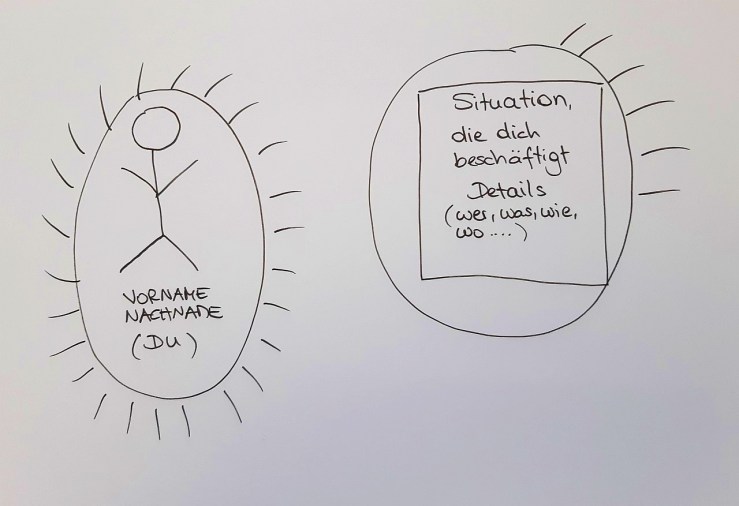 VORNAME
NACHNAME
(DU)
Situation,
die dich
beschäftigt
Details
(wer, was, wie,
wo ....)